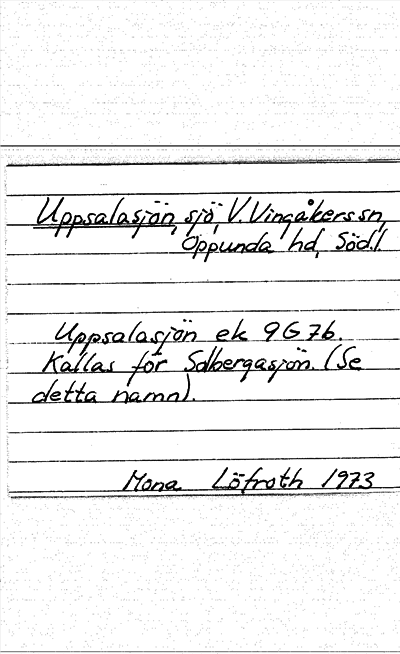 Uppsalasjön, sjö, V. Vingåkers sn,
Oppunda hd, Söd.l.
Uppsalasjön ek 9G 7b.
Kallas för Solbergasjön. (Se
detta namn).
Mona Löfroth 1973